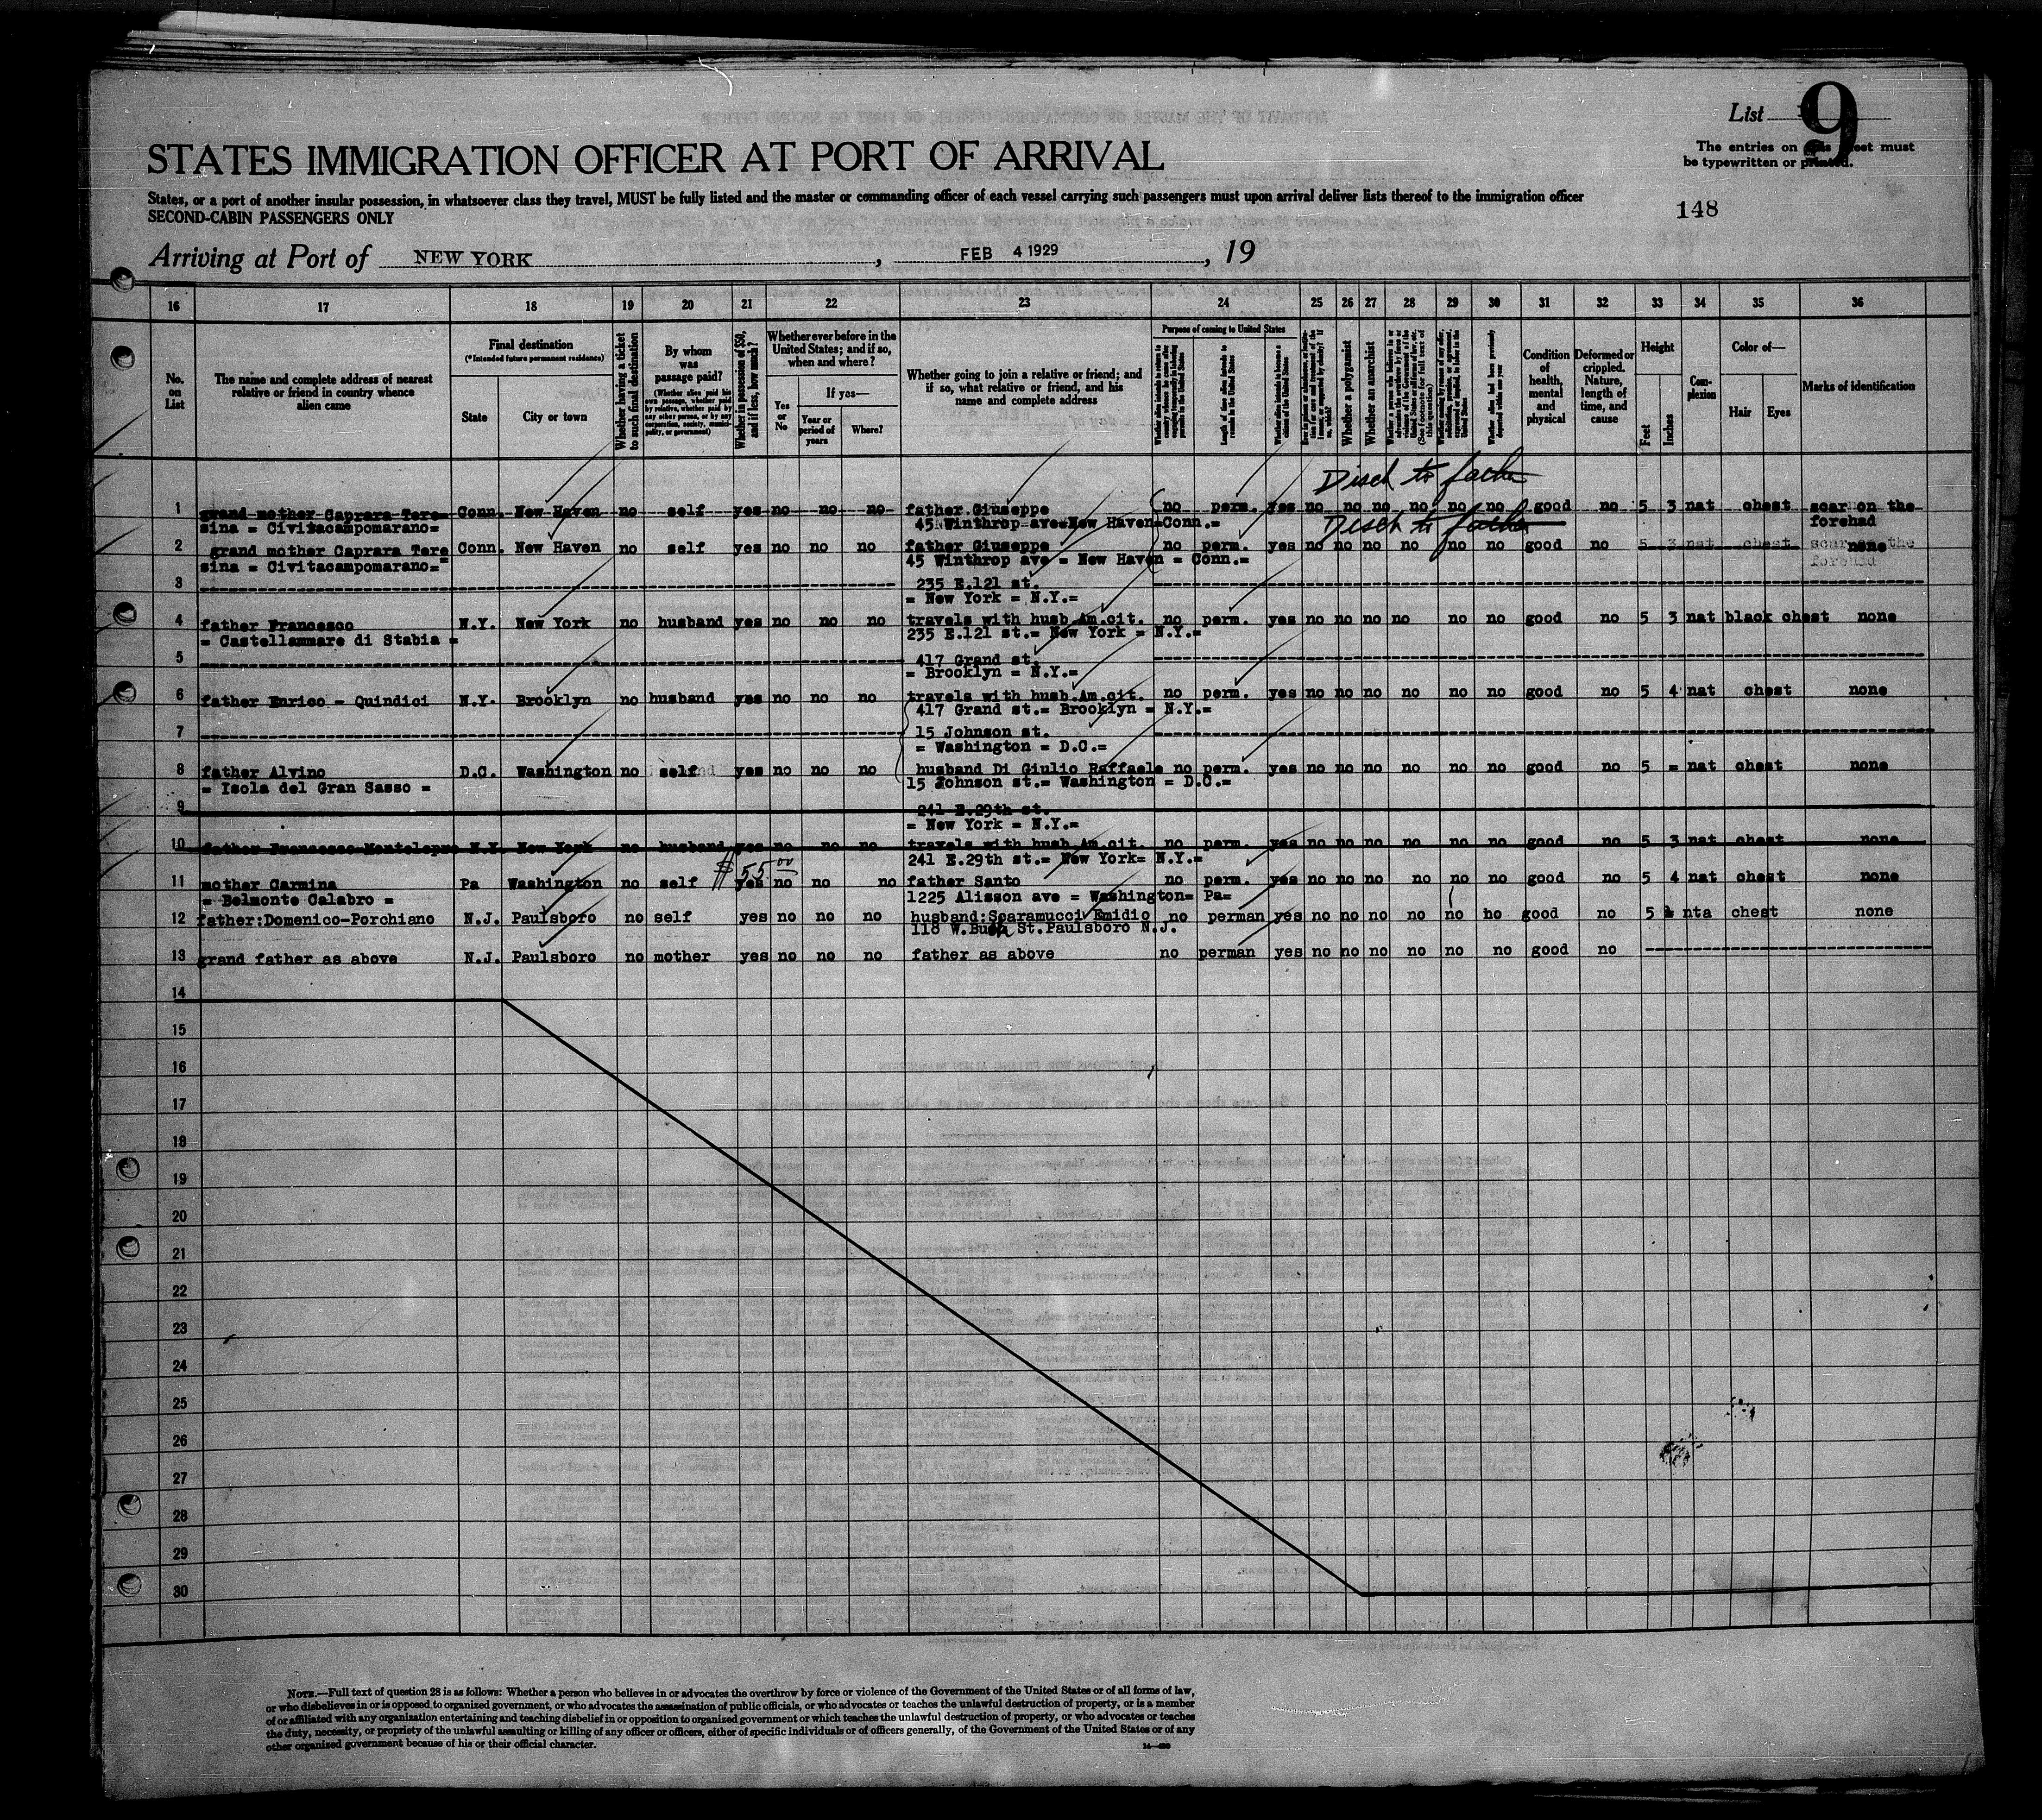 List 9
The entries on this sheet must
be typewritten or printed.
STATES IMMIGRATION OFFICER AT PORT OF ARRIVAL
States, or a port of another insular possession, in whatsoever class they travel, MUST be fully listed and the master or commanding officer of each vessel carrying such passengers must upon arrival deliver lists thereof to the immigration officer
SECOND-CABIN PASSENGERS ONLY
148
Arriving at Port of NEW YORK, FEB 4 1929, 19
16 17 18 19 20 21 22 23 24 25 26 27 28 29 30 31 32 33 34 35 36
No.
on
List
The name and complete address of nearest
relative or friend in country whence
alien came
Final destination
(*Intended future permanent residence)
State
City or town
Whether having a ticket
to such final destination
By whom
was
passage paid?
(Whether alien paid his
own passage, whether paid
by relative, whether paid by
any other person, or by any
corporation, society, munici-
pality, or government)
Whether in possession of $50,
and if less, how much?
Whether ever before in the
United States; and if so,
when and where?
Yes
or
No
If yes—
Year or
period of
years
Where?
Whether going to join a relative or friend; and
if so, what relative or friend, and his
name and complete address
Purpose of coming to United States
Length of time alien intends to
remain in the United States
Whether alien intends to become a
citizen of the United States
Whether a polygamist
Whether an anarchist
Whether alien had been previously
deported within one year
Condition
of
health,
mental
and
physical
Deformed or
crippled.
Nature,
length of
time, and
cause
Height
Feet
Inches
Com-
plexion
Color of—
Hair
Eyes
Marks of identification
Disch to father
1 grand mother Caprara Tere= Conn. New Haven no self yes no no no father Giuseppe no perm. yes no no no no no no good no 5 3 nat chest scar on the
sina = Civitacampomarano= 45 Winthrop ave=New Haven=Conn.= forehad
Disch to father
2 grand mother Caprara Tere Conn. New Haven no self yes no no no father Giuseppe no perm. yes no no no no no no good no 5 3 nat chest none
sina = Civitacampomarano= 45 Winthrop ave = New Haven = Conn.=
3 235 E.121 st.
= New York = N.Y.=
4 father Francesco N.Y. New York no husband yes no no no travels with husb.Am.cit. no perm. yes no no no no no no good no 5 3 nat black chest none
= Castellammare di Stabia = 235 E.121 st.= New York = N.Y.=
5 417 Grand st.
= Brooklyn = N.Y.=
6 father Enrico - Quindici N.Y. Brooklyn no husband yes no no no travels with husb.Am.cit. no perm. yes no no no no no no good no 5 4 nat chest none
417 Grand st.= Brooklyn = N.Y.=
7 15 Johnson st.
= Washington = D.C.=
8 father Alvino D.C. Washington no self yes no no no husband Di Giulio Raffaele no perm. yes no no no no no no good no 5 = nat chest none
= Isola del Gran Sasso = 15 Johnson st.= Washington = D.C.=
9 241 E.29th st.
= New York = N.Y.=
10 father Francesco Montelepre N.Y. New York no husband yes no no no travels with husb.Am.cit. no perm. yes no no no no no no good no 5 3 nat chest none
241 E.29th st.= New York= N.Y.=
$55.00
11 mother Carmina Pa Washington no self yes no no no father Santo no perm. yes no no no no no no good no 5 4 nat chest none
= Belmonte Calabro = 1225 Alisson ave = Washington= Pa=
12 father:Domenico-Porchiano N.J. Paulsboro no self yes no no no husband:Scaramucci Emidio no perman yes no no no no no no good no 5 nta chest none
118 W.Bush St.Paulsboro N.J.
13 grand father as above N.J. Paulsboro no mother yes no no no father as above no perman yes no no no no no no good no
14
15
16
17
18
19
20
21
22
23
24
25
26
27
28
29
30
NOTE.—Full text of question 28 is as follows: Whether a person who believes in or advocates the overthrow by force or violence of the Government of the United States or of all forms of law,
or who disbelieves in or is opposed to organized government, or who advocates the assassination of public officials, or who advocates or teaches the unlawful destruction of property, or is a member
of or affiliated with any organization entertaining and teaching disbelief in or opposition to organized government or which teaches the unlawful destruction of property, or who advocates or teaches
the duty, necessity, or propriety of the unlawful assaulting or killing of any officer or officers, either of specific individuals or of officers generally, of the Government of the United States or of any
other organized government because of his or their official character.